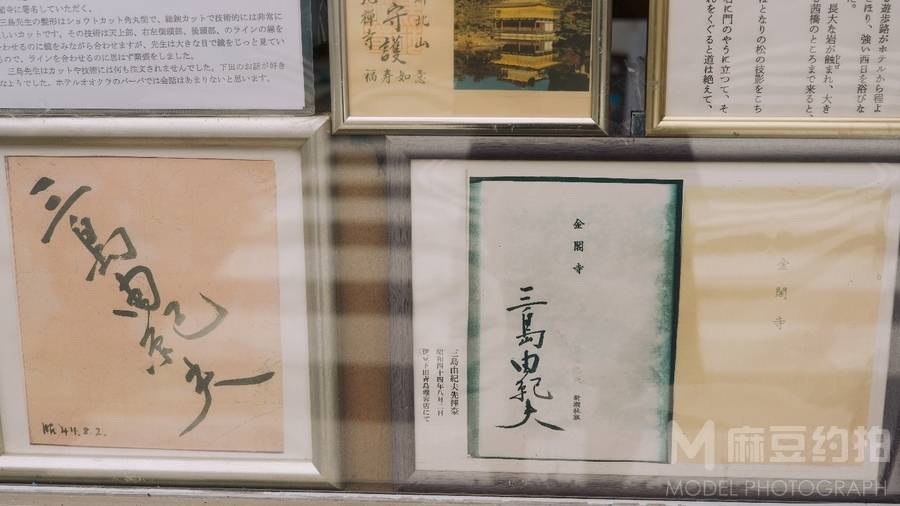 三島先生の髪形はショウトカット角丸型で、総鋏カットで技術的には非常に
しいカットです。その技術は天上部、右左側頭部、後頭部、のラインの線を
わせるのに鏡をみながら合わせますが、先生は大きな目で鏡をじっと見てい
るので、ラインを合わせるのに思はず緊張をしました。
三島先生はカットや技術には何も注文されませんでした。下田のお話が好き
ホテルオオクラのバーバでは会話はあまりないと思います。
北山
守護
禅寺
福寿如意
遊歩路がホテルから程よ
さほり、強い西日を浴びな
長大な岩が蝕まれ、大き
る茜橋のところまで来ると、
はとなりの松の枝影をこち
右に門のやうに立つて、そ
れをくぐると道は絶えて、
三島由紀夫
昭44.8.2.
金閣寺
三島由紀夫
新潮社版
三島由紀夫先揮毫
昭和四十四年八月二日
金閣寺
M 麻豆约拍
MODEL PHOTOGRAPH